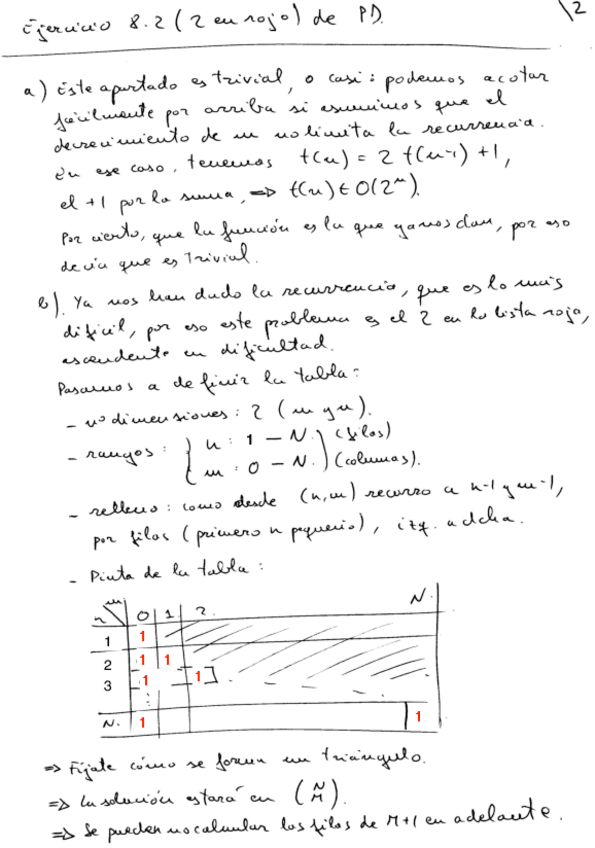 Ejercicio 8.2 (2 en rojo) de PD.
12
a) Este apartado es trivial, o casi: podemos acotar
fácilmente por arriba si asumimos que el
decrecimiento de m no limita la recurrencia.
En ese caso, tenemos t(n) = 2 t(n-1) + 1,
el +1 por la suma, => t(n) ∈ O(2^n).
Por cierto, que la función es la que ya nos dan, por eso
decía que es trivial.
b). Ya nos han dado la recurrencia, que es lo más
difícil, por eso este problema es el 2 en la lista roja,
ascendente en dificultad.
Pasamos a definir la tabla:
- nº dimensiones: 2 (m y n).
- rangos: { n: 1 - N. } (filas)
{ m: 0 - N. } (columnas).
- relleno: como desde (n,m) recurro a n-1 y m-1,
por filas (primero n pequeño), izq. a dcha.
- Pinta de la tabla:
m 0 1 2. N.
n
1 1
2 1 1
3 1 1
N. 1 1
=> Fíjate cómo se forma un triángulo.
=> La solución estará en (N M).
=> Se pueden no calcular las filas de M+1 en adelante.